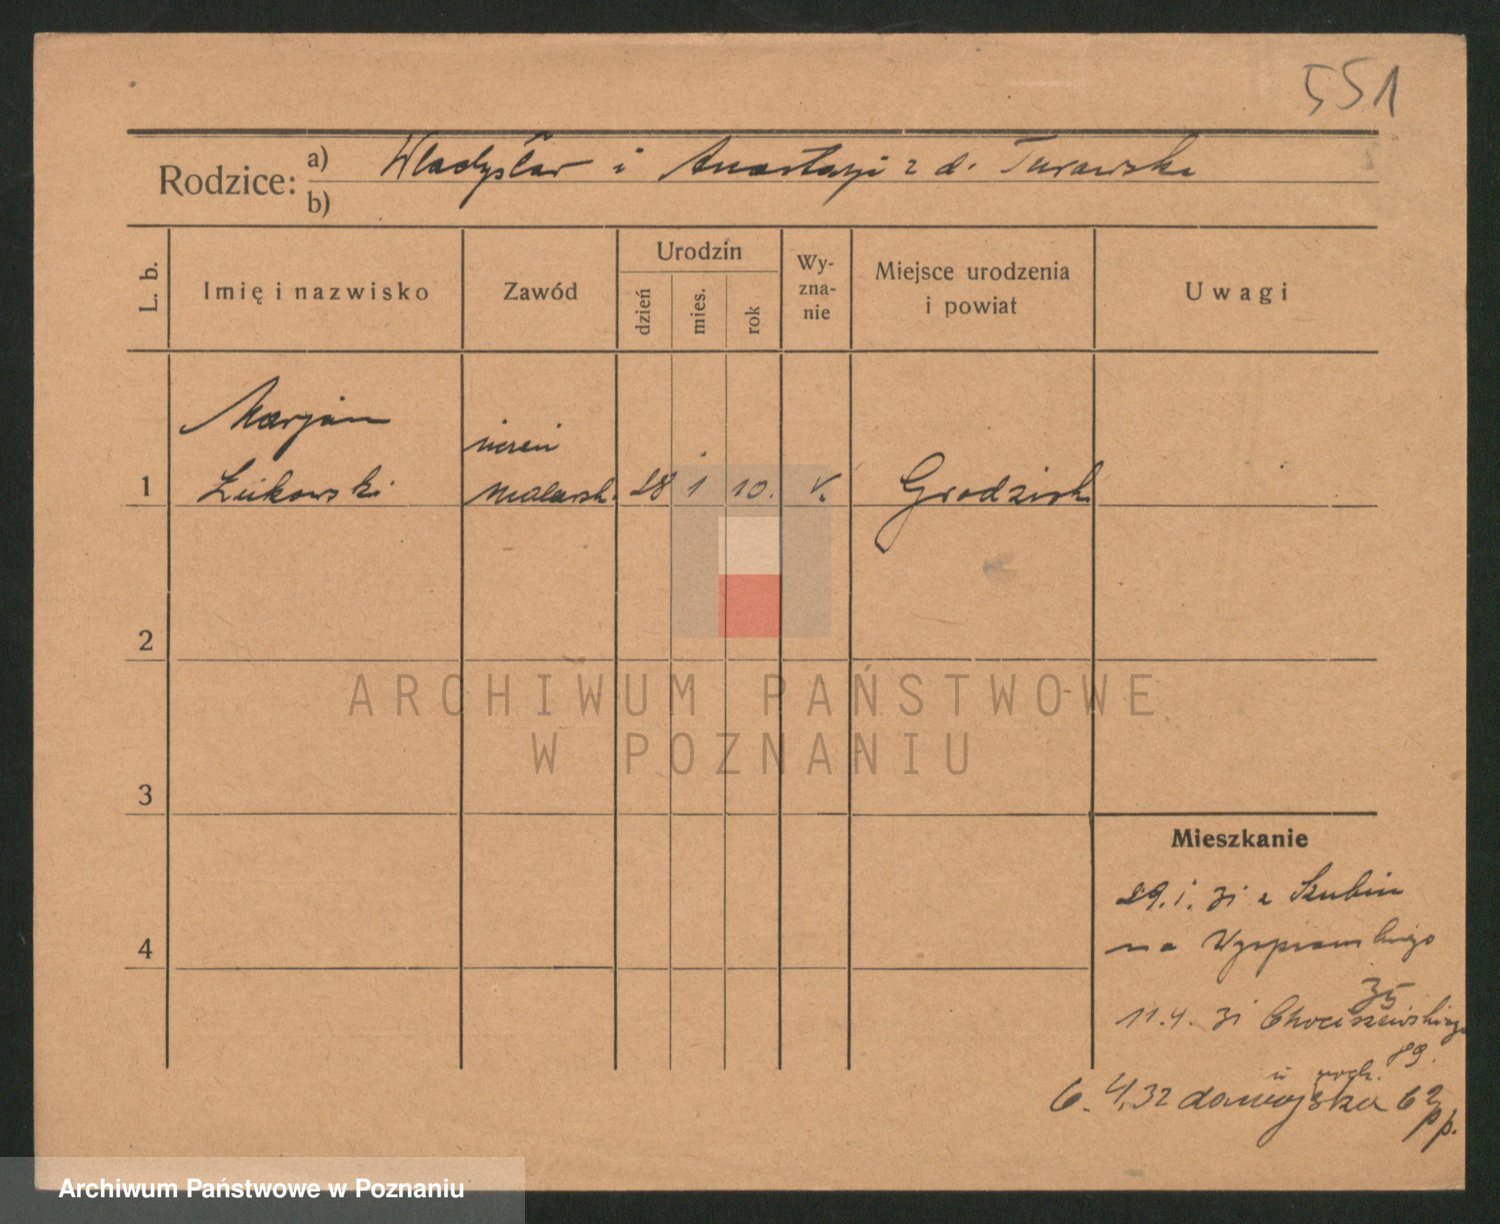 551
Rodzice: a) Władysław i Anastazji z d. Turawska
b)
L. b.
Imię i nazwisko
Zawód
Urodzin
dzień
mies.
rok
Wy-
zna-
nie
Miejsce urodzenia
i powiat
Uwagi
Marjan
uczeń
1 Żukowski malarsk. 28 1 10. k. Grodzisk
2
ARCHIWUM PAŃSTWOWE
W POZNANIU
3
Mieszkanie
29.1.31 z Szubin
na Wyspiańskiego
35
11.4.31 Chociszewskiego
89.
6.4.32 do wojska 62
pp.
Archiwum Państwowe w Poznaniu